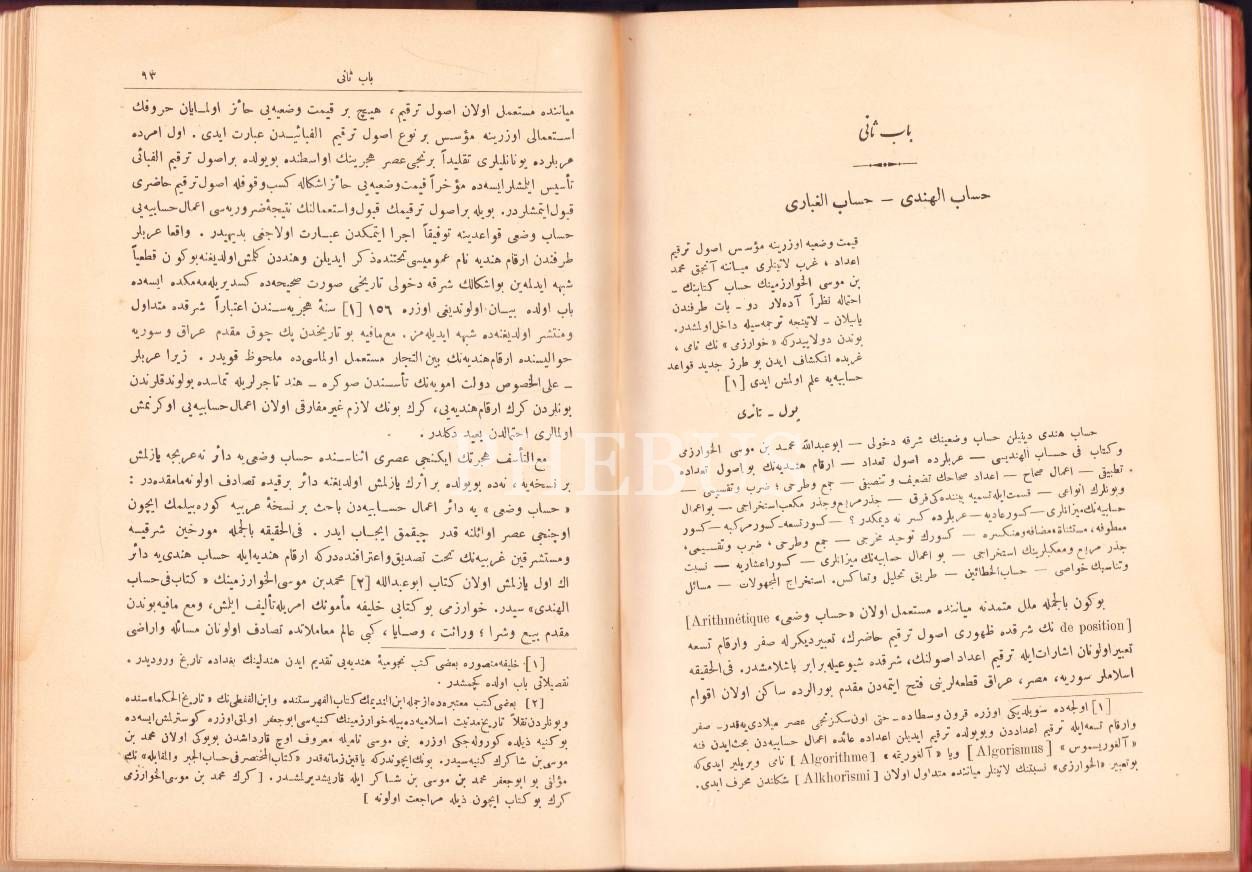 باب ثانی
حساب الهندی — حساب الغباری
قیمت وضعیه اوزرینه مؤسس اصول ترقیم
اعداد ، غرب لاتینلری میاننه آنجق محمد
بن موسی الخوارزمینك حساب کتابنك ـ
احتماله نظراً آده‌لار دو ـ بات طرفندن
یاپیلان ـ لاتینجه ترجمه‌سیله داخل اولمشدر.
بوندن دولاییدرکه « خوارزمی » نك نامی ،
غربده انکشاف ایدن بو طرز جدید قواعد
حسابیه‌یه علم اولمش ایدی [١]
پول ـ تانری
حساب هندی دینیلن حساب وضعینك شرقه دخولی — ابوعبدالله محمد بن موسی الخوارزمی
و کتاب فی حساب الهندیسی — عربلرده اصول تعداد — ارقام هندیه‌نك بو اصول تعداده
تطبیقی — اعمال صحاح — اعداد صحاحك تضعیف و تنصیفی — جمع وطرحی ؛ ضرب وتقسیمی —
وبونلرك انواعی — قسمت ایله تسمیه بیننده‌کی فرق — جذر مربع وجذر مکعب استخراجی — بو اعمال
حسابیه‌نك میزانلری — کسور عادیه — عربلرده کسر نه دیمکدر ؟ — کسور تسعه ـ کسور مرکبه — کسور
معطوفه، مستثناة، مضافه ومنکسره — کسورك توحید مخرجی — جمع وطرحی ، ضرب وتقسیمی،
جذر مربع ومکعبلرینك استخراجی — بو اعمال حسابیه‌نك میزانلری — کسور اعشاریه — نسبت
وتناسبك خواصی — حساب الخطائین — طریق تحلیل وتعاکس. استخراج المجهولات — مسائل
بوکون بالجمله ملل متمدنه میاننده مستعمل اولان «حساب وضعی» Arithmétique]
[de position نك شرقده ظهوری اصول ترقیم حاضرك، تعبیر دیکرله صفر وارقام تسعه
تعبیر اولونان اشارات ایله ترقیم اعداد اصولنك، شرقده شیوعیله برابر باشلامشدر. فی الحقیقه
اسلاملر سوریه، مصر، عراق قطعه‌لرینی فتح ایتمه‌دن مقدم بورالرده ساکن اولان اقوام
[١] اولجه‌ده سویلدیکی اوزره قرون وسطاده ـ حتی اون سکزنجی عصر میلادی‌یه قدر ـ صفر
وارقام تسعه ایله ترقیم اعداددن وبویولده ترقیم ایدیلن اعداده عائده اعمال حسابیه‌دن بحث ایدن فنه
« آلغوریسموس » [ Algorismus ] ویا « آلغوریتمه » [ Algorithme ] نامی ویریلیر ایدی که
بو تعبیر «الخوارزمی» نسبتنك لاتینلر میاننده متداول اولان [ Alkhorismi ] شکلندن محرف ایدی.
باب ثانی
٩٣
میاننده مستعمل اولان اصول ترقیم ، هیچ بر قیمت وضعیه‌یی حائز اولمایان حروفك
استعمالی اوزرینه مؤسس بر نوع اصول ترقیم الفبائیدن عبارت ایدی . اول امرده
عربلرده یونانلیلری تقلیداً برنجی عصر هجرینك اواسطنده بویولده بر اصول ترقیم الفبائی
تأسیس ایلمشلر ایسه‌ده مؤخراً قیمت وضعیه‌یی حائز اشکاله کسب وقوفله اصول ترقیم حاضری
قبول ایتمشلردر. بویله بر اصول ترقیمك قبول واستعمالنك نتیجهٔ ضروریه‌سی اعمال حسابیه‌یی
حساب وضعی قواعدینه توفیقاً اجرا ایتمکدن عبارت اولاجغی بدیهیدر . واقعا عربلر
طرفندن ارقام هندیه نام عمومیسی تحتنده ذکر ایدیلن وهنددن کلمش اولدیغنه بوکون قطعیاً
شبهه ایدلمه‌ین بو اشکالك شرقه دخولی تاریخی صورت صحیحه‌ده کسدیریله‌مه‌مکده ایسه‌ده
باب اولده بیان اولوندیغی اوزره ١٥٦ [١] سنهٔ هجریه‌سندن اعتباراً شرقده متداول
ومنتشر اولدیغنده شبهه ایدیله‌مز. مع مافیه بو تاریخدن پك چوق مقدم عراق و سوریه
حوالیسنده ارقام هندیه‌نك بین التجار مستعمل اولماسی‌ده ملحوظ قویدر . زیرا عربلر
ـ علی الخصوص دولت امویه‌نك تأسسندن صوکره ـ هند تاجرلریله تماسده بولوندقلرندن
بونلردن کرك ارقام هندیه‌یی، کرك بونك لازم غیر مفارقی اولان اعمال حسابیه‌یی اوکرنمش
اولمالری احتمالدن بعید دکلدر .
مع التأسف هجرتك ایکنجی عصری اثناسنده حساب وضعی‌یه دائر نه عربجه یازلمش
بر نسخه‌یه و نه‌ده بویولده بر اثرك یازلمش اولدیغنه دائر بر قیده تصادف اولونه‌مامقده‌در :
« حساب وضعی » یه دائر اعمال حسابیه‌دن باحث بر نسخهٔ عربیه کوره‌بیلمك ایچون
اوچنجی عصر اوائلنه قدر چیقمق ایجاب ایدر . فی الحقیقه بالجمله مورخین شرقیه
ومستشرقین غربیه‌نك تحت تصدیق واعترافنده‌درکه ارقام هندیه ایله حساب هندی‌یه دائر
اك اول یازلمش اولان کتاب ابوعبدالله [٢] محمد بن موسی الخوارزمینك « کتاب فی حساب
الهندی» سیدر. خوارزمی بو کتابی خلیفه مأمونك امریله تألیف ایلمش، ومع مافیه بوندن
مقدم بیع وشرا ؛ وراثت ، وصایا ، کبی عالم معاملاتده تصادف اولونان مسائله واراضی
[١] خلیفه منصوره بعضی کتب نجومیهٔ هندیه‌یی تقدیم ایدن هندلینك بغداده تاریخ ورودیدر .
تفصیلاتی باب اولده کچمشدر .
[٢] بعضی کتب معتبره‌ده ازجمله ابن الندیمك کتاب الفهرستنده وابن القفطی نك « تاریخ الحکما» سنده
وبونلردن نقلاً تاریخ مدنیت اسلامیه‌ده بیله خوارزمینك کنیه‌سی ابوجعفر اولمق اوزره کوسترلمش ایسه‌ده
بو کنیه ذیلده کوروله‌جکی اوزره بنی موسی نامیله معروف اوچ قارداشدن بویوکی اولان محمد بن
موسی بن شاکرك کنیه‌سیدر. بونك ایچوندرکه یاقین زمانه قدر «کتاب المختصر فی حساب الجبر والمقابله» نك
مؤلفی بو ابوجعفر محمد بن موسی بن شاکر ایله قاریشدیرلمشدر. [ کرك محمد بن موسی الخوارزمی
کرك بو کتاب ایچون ذیله مراجعت اولونه ]
PHEBUS